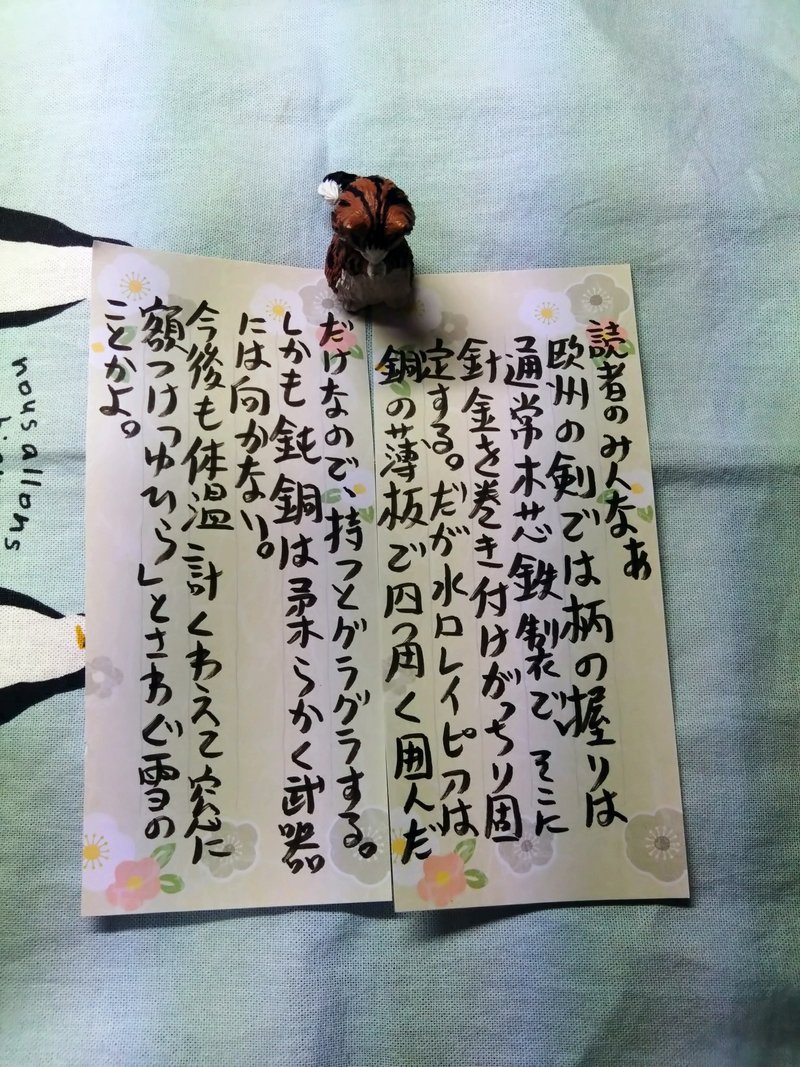 読者のみんなぁ
欧州の剣では柄の握りは
通常木芯鉄製で、そこに
針金を巻き付けがっちり固
定する。だが水口レイピアは
銅の薄板で四つ角く囲んだ
だけなので、持つとグラグラする。
しかも鈍銅は柔らかく武器
には向かない。
今後も体温計くわえて窓に
額つけ「ゆひら」とさわぐ雪の
ことかよ。
nousallons